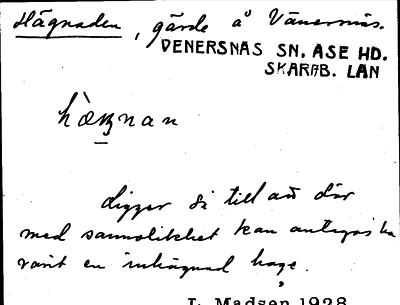 Hägnaden, gärde å Vänernäs.
VENERSNÄS SN. ÅSE HD.
SKARAB. LÄN
hὰŋnan
ligger så till att där
med sannolikhet kan antagas ha
varit en inhägnad hage.
L. Madsen 1928